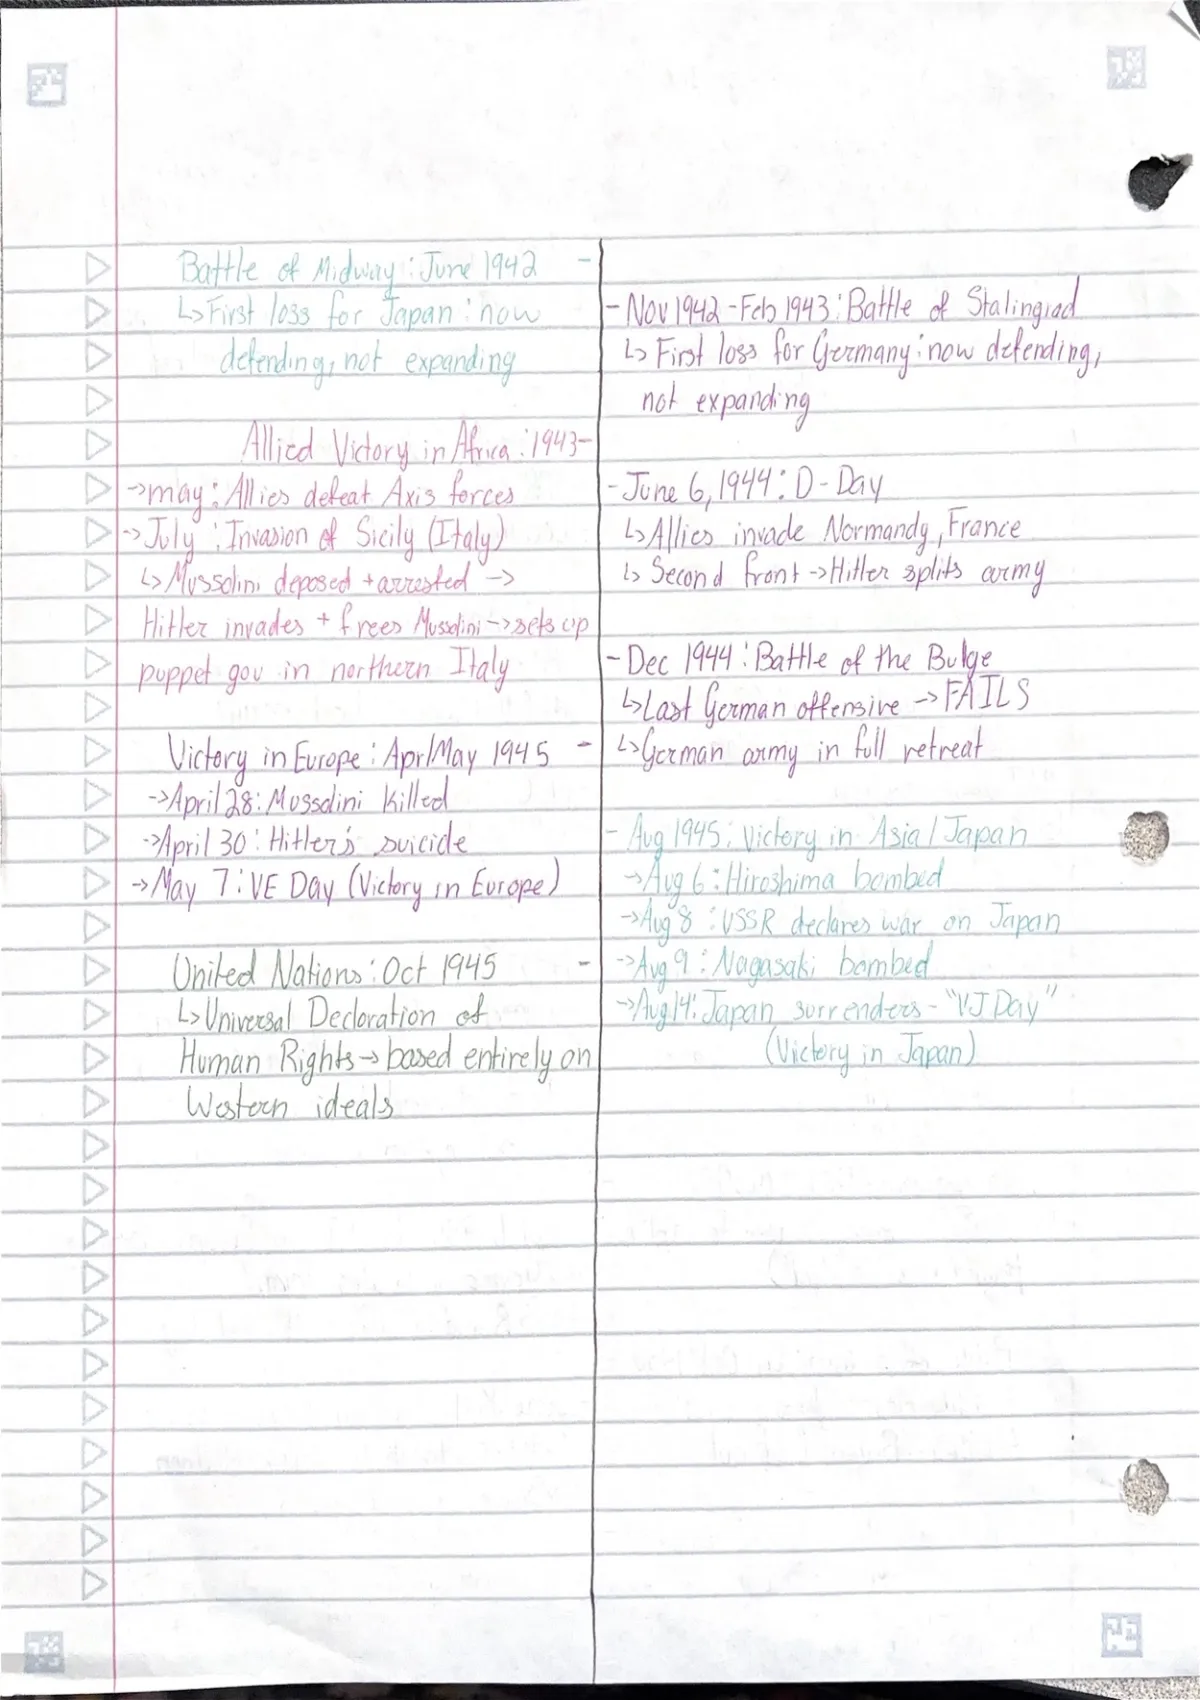 Battle of Midway: June 1942 -
↳First loss for Japan: now
defending, not expanding
Allied Victory in Africa: 1943-
->may: Allies defeat Axis forces
-> July: Invasion of Sicily (Italy)
↳ Mussolini deposed + arrested ->
Hitler invades + frees Mussolini -> sets up
puppet gov in northern Italy
Victory in Europe: Apr/May 1945 -
->April 28: Mussolini killed
->April 30: Hitler's suicide
->May 7: VE Day (Victory in Europe)
United Nations: Oct 1945 -
↳Universal Declaration of
Human Rights -> based entirely on
Western ideals
- Nov 1942 - Feb 1943: Battle of Stalingrad
↳ First loss for Germany: now defending,
not expanding
- June 6, 1944: D-Day
↳Allies invade Normandy, France
↳ Second front -> Hitler splits army
- Dec 1944: Battle of the Bulge
↳Last German offensive -> FAILS
↳German army in full retreat
- Aug 1945: Victory in Asia / Japan
->Aug 6: Hiroshima bombed
->Aug 8: USSR declares war on Japan
->Aug 9: Nagasaki bombed
->Aug 14: Japan surrenders - "VJ Day"
(Victory in Japan)